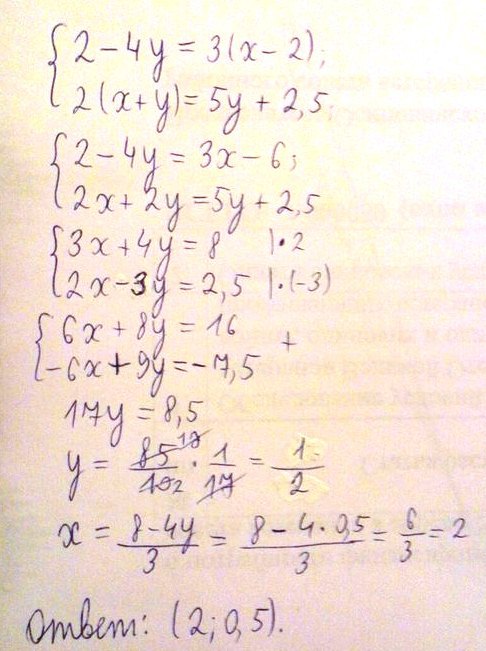 2 - 4y = 3(x - 2);
2(x + y) = 5y + 2,5;
2 - 4y = 3x - 6;
2x + 2y = 5y + 2,5
3x + 4y = 8 | · 2
2x - 3y = 2,5 | · (-3)
6x + 8y = 16 +
-6x + 9y = -7,5
17y = 8,5
y = 85/10 · 1/17 = 1/2
x = (8 - 4y)/3 = (8 - 4 · 0,5)/3 = 6/3 = 2
Ответ: (2; 0,5).